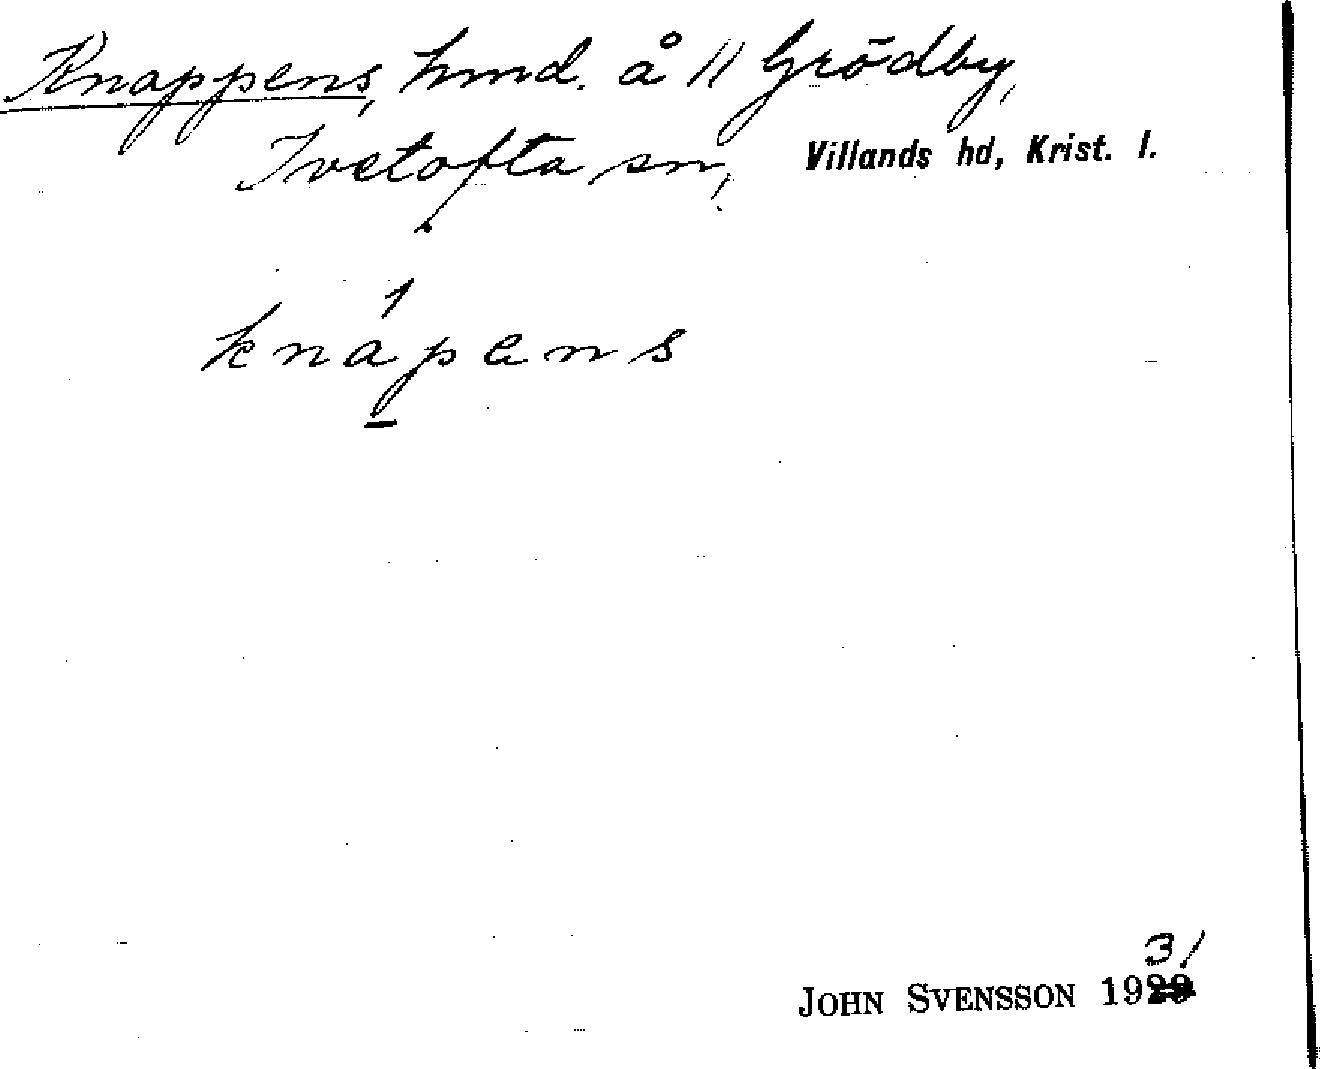 Knappens, hmd. å 11 Grödby,
Ivetofta sn, Villands hd, Krist. l.
knápens
JOHN SVENSSON 1931